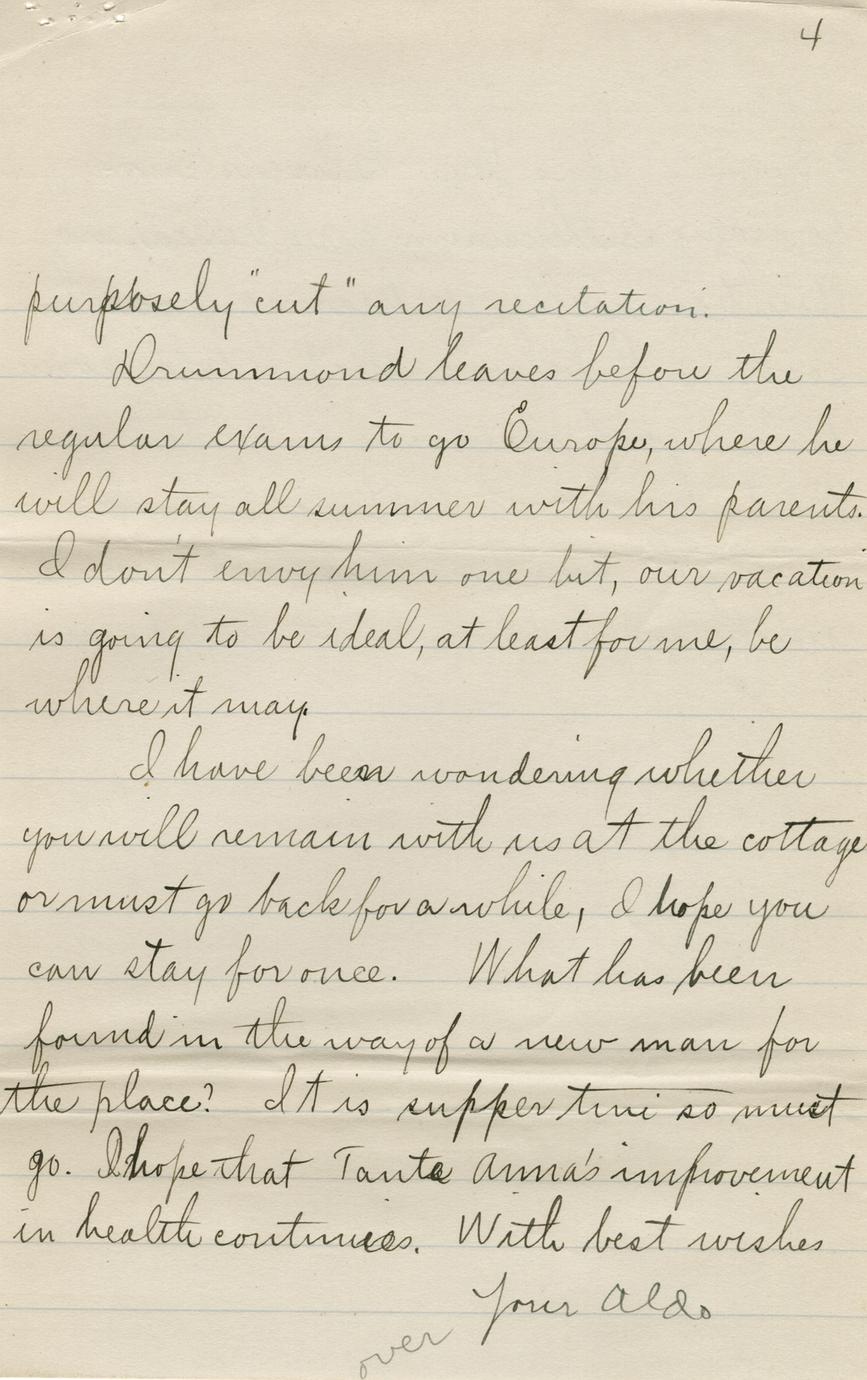 4
purposely "cut" any recitation.
Drummond leaves before the
regular exams to go Europe, where he
will stay all summer with his parents.
I don't envy him one bit, our vacation
is going to be ideal, at least for me, be
where it may.
I have been wondering whether
you will remain with us at the cottage
or must go back for a while, I hope you
can stay for once. What has been
found in the way of a new man for
the place? It is supper time so must
go. I hope that Tante Anna's improvement
in health continues. With best wishes
Your Aldo
over